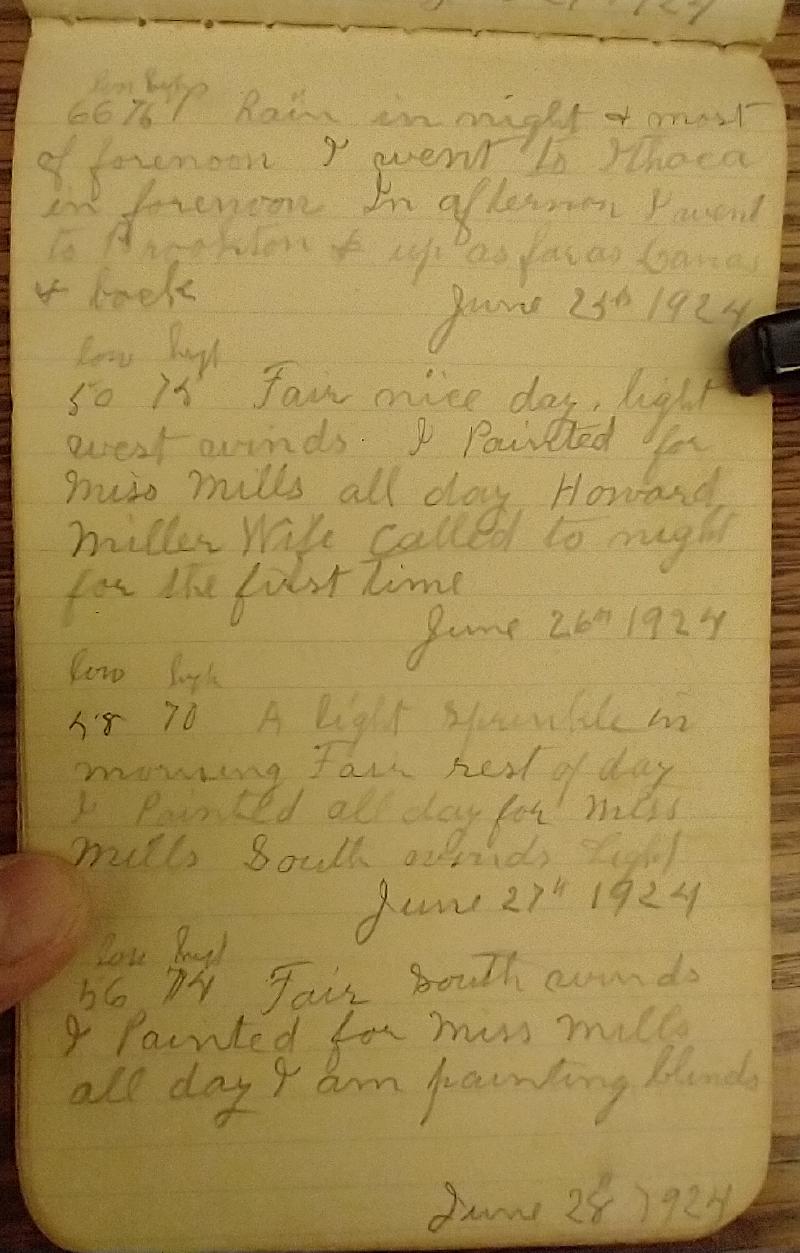 1924
low high
66 76 Rain in night & most
of forenoon I went to Ithaca
in forenoon In afternoon I went
to Brookton & up as far as
& back
June 25th 1924
low high
50 75 Fair nice day, light
west winds. I Painted for
Miss Mills all day Howard
Miller Wife Called to night
for the first time
June 26th 1924
low high
58 70 A light Sprinkle in
morning Fair rest of day
I Painted all day for Miss
Mills South winds light
June 27th 1924
low high
56 74 Fair South winds
I Painted for Miss Mills
all day I am painting blinds
June 28 1924